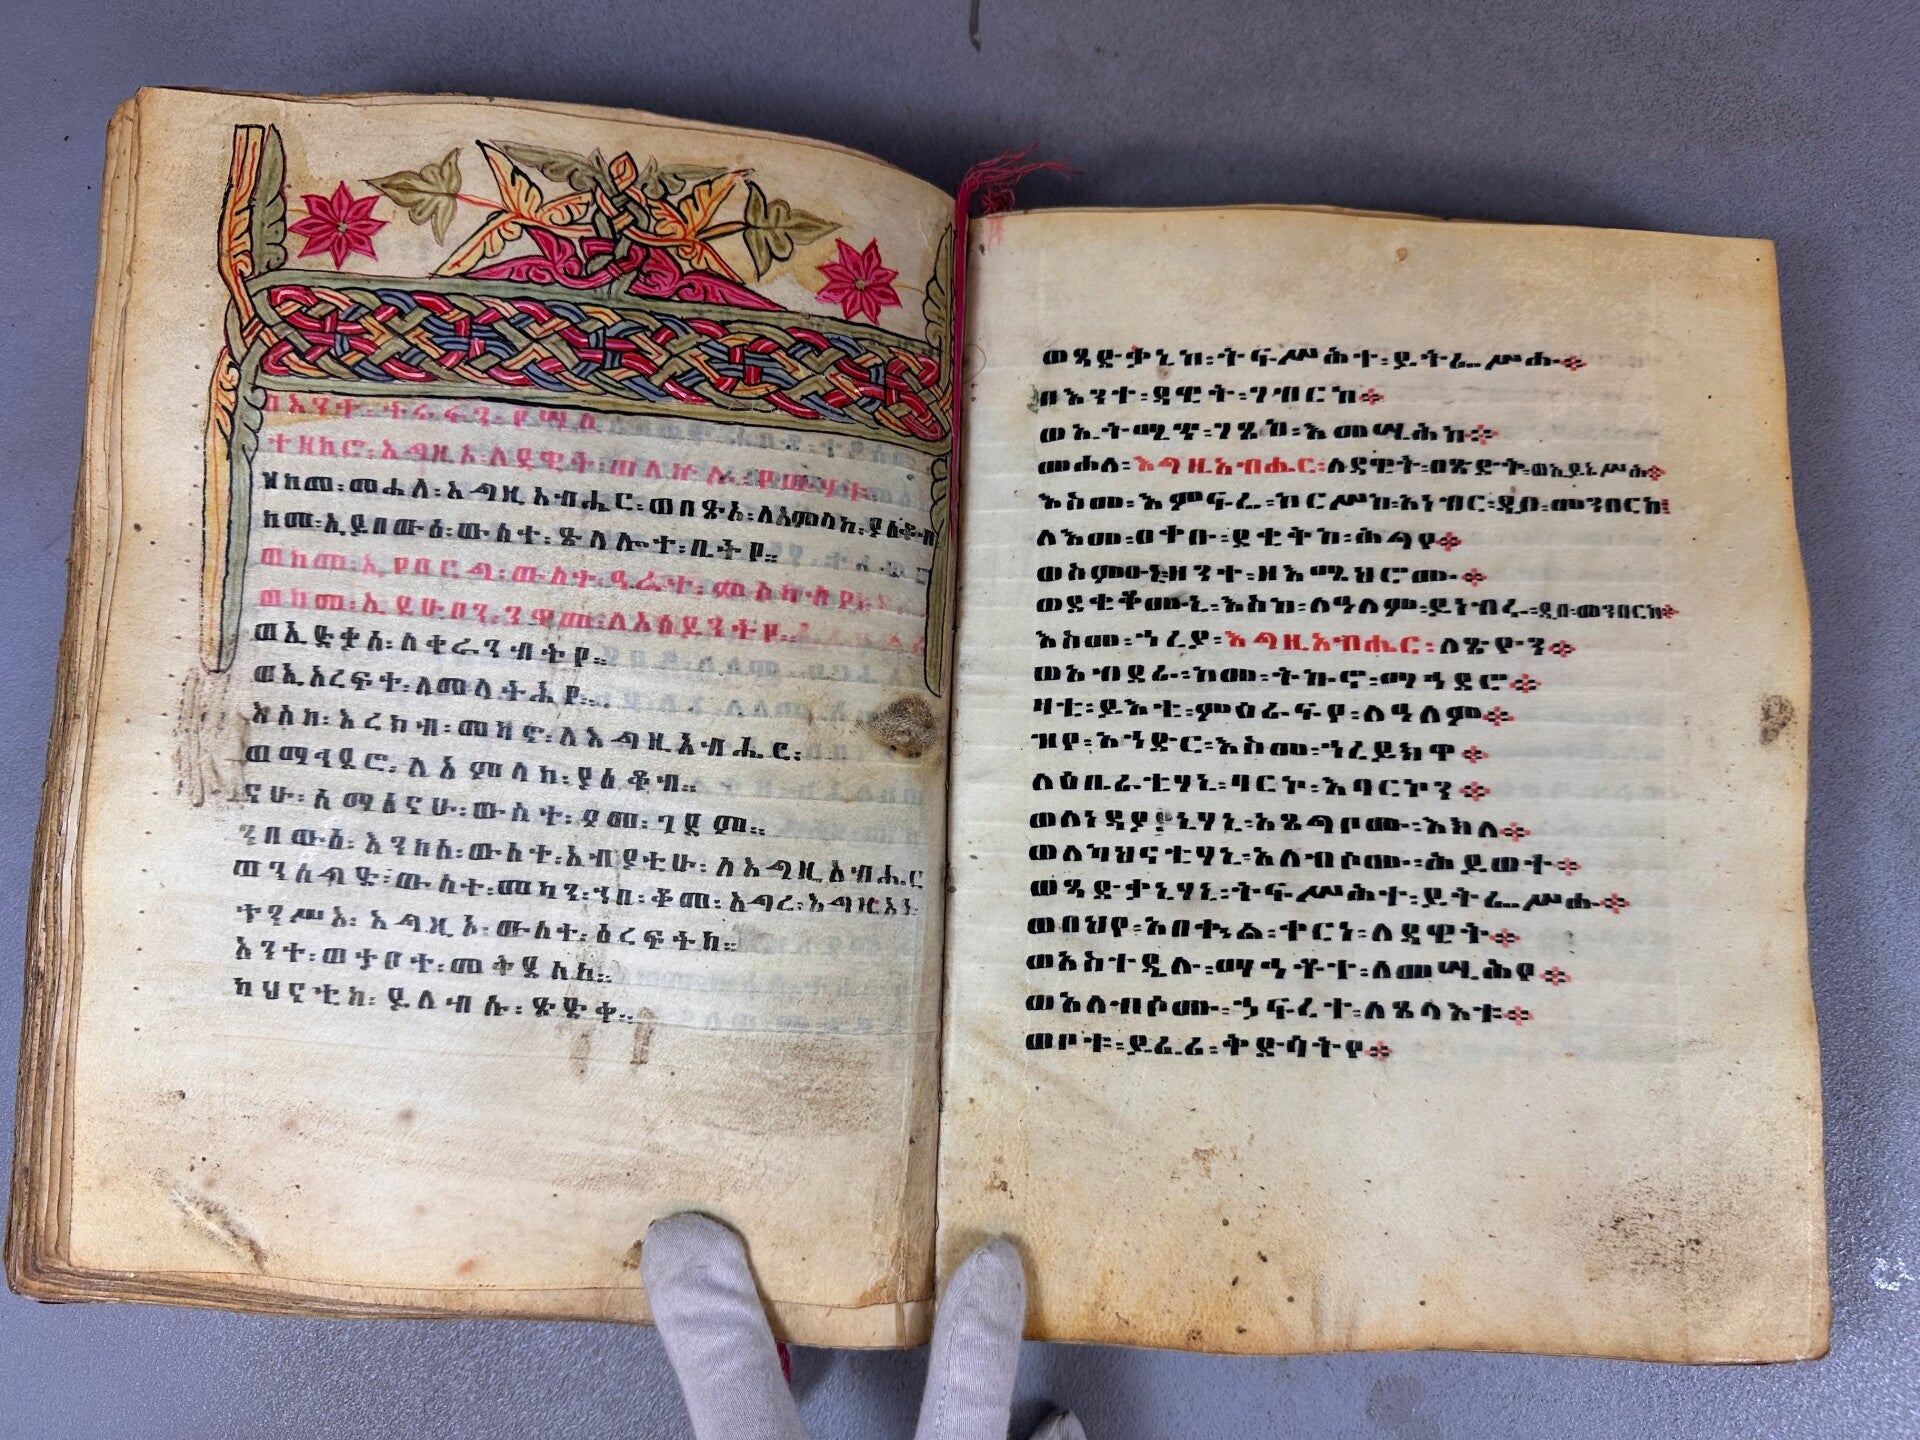 በእንተ፡ ተራፋን፡
ተዘከሮ፡ እግዚኦ፡ ለዳዊት፡ ወለኵሉ፡ የውሃቱ።
ዘከመ፡ መሐለ፡ እግዚአብሔር፡ ወበፅአ፡ ለአምላከ፡ ያዕቆብ
ከመ፡ ኢይበውዕ፡ ውስተ፡ ጽላሎተ፡ ቤትየ።
ወከመ፡ ኢየዐርግ፡ ውስተ፡ ዓራተ፡ ምስካብየ።
ወከመ፡ ኢይሁበን፡ ንዋመ፡ ለአዕይንትየ።
ወኢድቃስ፡ ለቀራንብትየ።
ወኢእረፍተ፡ ለመላትሕየ።
እስከ፡ እረክብ፡ መካኖ፡ ለእግዚአብሔር፡
ወማኅደሮ፡ ለአምላከ፡ ያዕቆብ።
ናሁ፡ ሰማዕናሁ፡ ውስተ፡ ዖመ፡ ገዳም።
ንበውዕ፡ እንከሰ፡ ውስተ፡ አብያቲሁ፡ ለእግዚአብሔር
ወንሰግድ፡ ውስተ፡ መካን፡ ኀበ፡ ቆመ፡ እግረ፡ እግዚእነ
ተንሥእ፡ እግዚኦ፡ ውስተ፡ ዕረፍትከ።
አንተ፡ ወታቦተ፡ መቅደስከ።
ካህናቲከ፡ ይለብሱ፡ ጽድቀ።
ወጻድቃኒከ፡ ትፍሥሕተ፡ ይትፌሥሑ፨
በእንተ፡ ዳዊት፡ ገብርከ፨
ወኢትሚጥ፡ ገጸከ፡ እመሲሕከ፨
መሐለ፡ እግዚአብሔር፡ ለዳዊት፡ በጽድቅ፡ ወኢይኔስሕ፨
እስመ፡ እምፍሬ፡ ከርሥከ፡ አነብር፡ ዲበ፡ መንበርከ፨
ለእመ፡ ዐቀቡ፡ ደቂቅከ፡ ሕግየ፨
ወስምዑኒ፡ ዘንተ፡ ዘእሜህሮሙ፨
ወደቂቆሙኒ፡ እስከ፡ ለዓለም፡ ይነብሩ፡ ዲበ፡ መንበርከ፨
እስመ፡ ኀረያ፡ እግዚአብሔር፡ ለጽዮን፨
ወአብደራ፡ ከመ፡ ትኩኖ፡ ማኅደሮ፨
ዛቲ፡ ይእቲ፡ ምዕራፍየ፡ ለዓለም፨
ዝየ፡ አኀድር፡ እስመ፡ ኀረይክዋ፨
ለዕቤራቲሃኒ፡ ባርኮ፡ እባርኮን፨
ወለነዳያኒሃኒ፡ አጸግቦሙ፡ እክለ፨
ወለካህናቲሃኒ፡ አለብሶሙ፡ ሕይወተ፨
ወጻድቃኒሃኒ፡ ትፍሥሕተ፡ ይትፌሥሑ፨
ወበህየ፡ አበቍል፡ ቀርነ፡ ለዳዊት፨
ወአስተዴሉ፡ ማኅቶተ፡ ለመሲሕየ፨
ወአለብሶሙ፡ ኀፍረተ፡ ለጸላእቱ፨
ወቦቱ፡ ይፈሪ፡ ቅድሳትየ፨